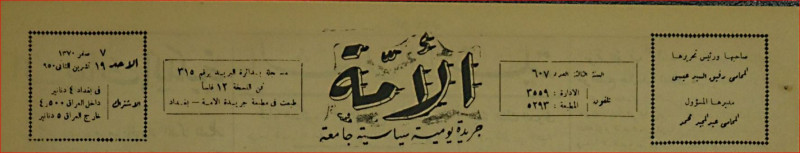 صاحبها ورئيس تحريرها
المحامي رفيق السيد عيسى
مديرها المسؤول
المحامي عبد المجيد محمد
السنة الثالثة العدد ٦٠٧
تلفون
الادارة : ٣٥٥٩
المطبعة : ٥٢٩٣
الأمّة
جريدة يومية سياسية جامعة
مسجلة بدائرة البريد برقم ٣١٥
ثمن النسخة ١٢ فلساً
طبعت في مطبعة جريدة الامة — بغداد
٧ صفر ١٣٧٠
الاحد ١٩ تشرين الثاني ٩٥٠
الاشتراك
في بغداد ٤ دنانير
داخل العراق ٤,٥٠٠
خارج العراق ٥ دنانير